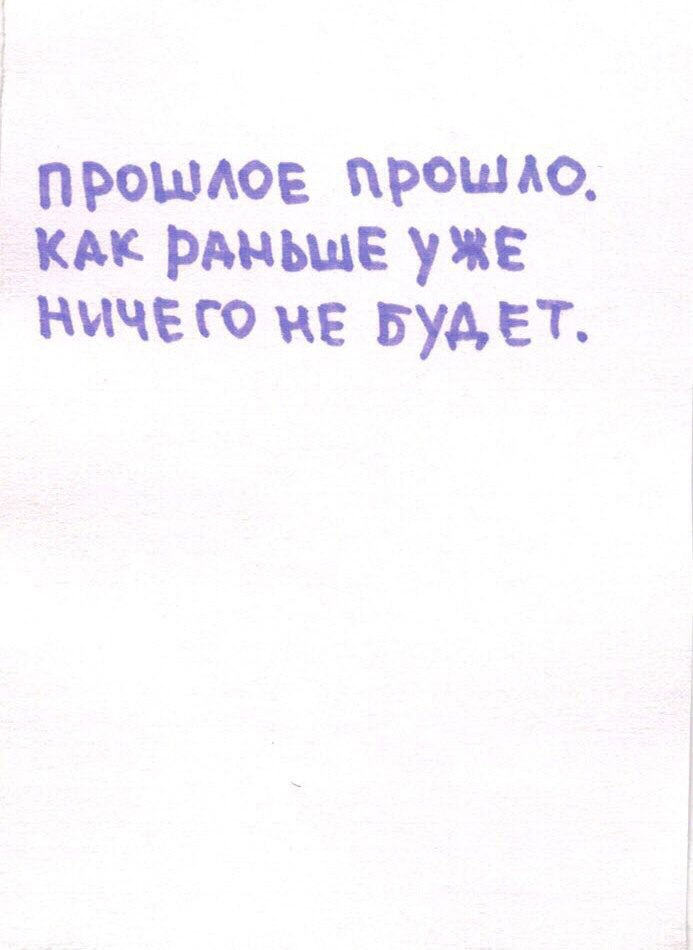 ПРОШЛОЕ ПРОШЛО.
КАК РАНЬШЕ УЖЕ
НИЧЕГО НЕ БУДЕТ.